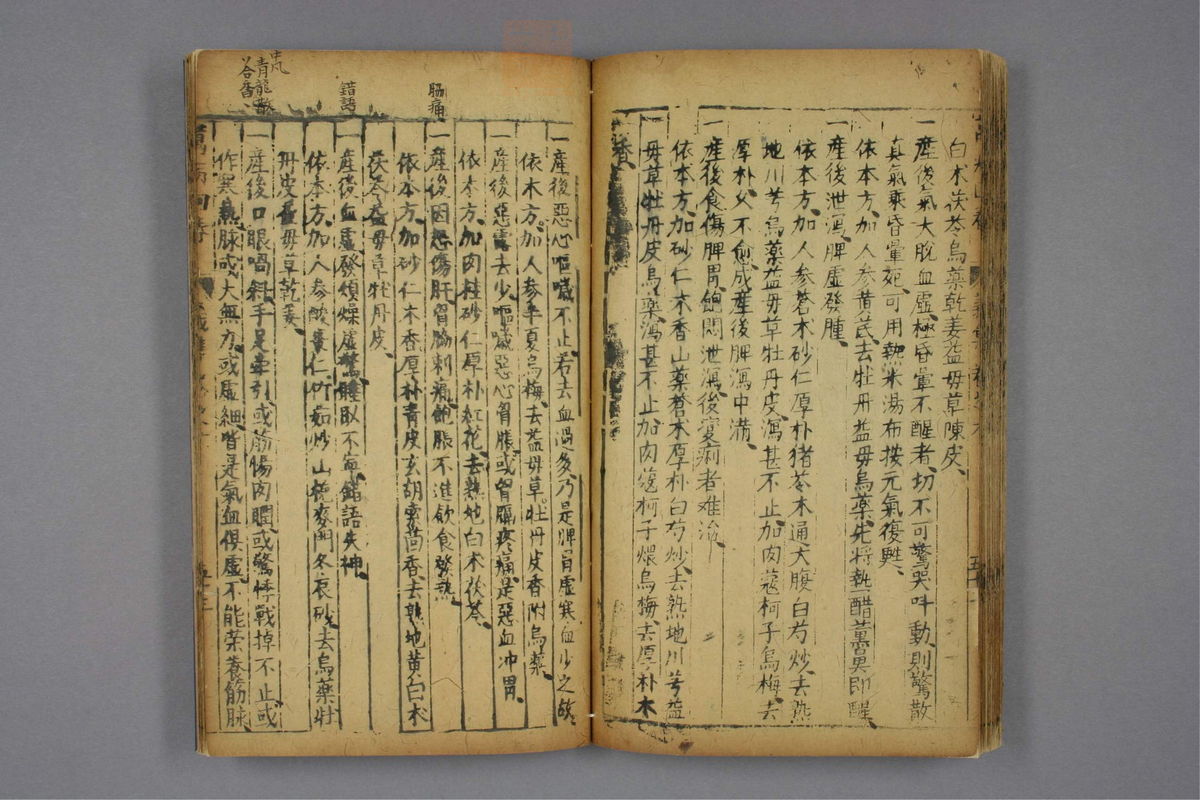 白朮茯苓烏藥乾姜益母草陳皮
一產後氣大脫血虛極昏暈不醒者切不可驚哭呌動則驚散
真氣乘昏暈死可用熱米湯布按元氣復甦
依本方加人參黃芪去牡丹益母烏藥先將熱醋薰鼻即醒
一產後泄瀉脾虛發腫
依本方加人參蒼朮砂仁厚朴猪苓木通大腹白芍炒去熟
地川芎烏藥益母草牡丹皮瀉甚不止加肉蔻柯子烏梅去
厚朴久不愈成產後脾瀉中滿
一產後食傷脾胃飽悶泄瀉後變痢者难治
依本方加砂仁木香山藥蒼朮厚朴白芍炒去熟地川芎益
母草牡丹皮烏藥瀉甚不止加肉蔻柯子煨烏梅去厚朴木
香
一產後惡心嘔噦不止若去血過多乃是脾胃虛寒血少之故
依本方加人參半夏烏梅去益母草牡丹皮香附烏藥
一產後惡露去少嘔噦惡心胃脹或胃膈疼痛是惡血冲胃
依本方加肉桂砂仁厚朴紅花去熟地白朮茯苓
一產後因怒傷肝胃脇刺痛飽脹不進飲食發熱
依本方加砂仁木香厚朴青皮玄胡索茴香去熟地黃白朮
茯苓益母草牡丹皮
一產後血虛發煩燥虛驚睡臥不寧錯語失神
依本方加人參酸棗仁竹茹炒山梔麥門冬辰砂去烏藥牡
丹皮益母草乾姜
一產後口眼喎斜手足牽引或筋惕肉瞤或驚悸戰掉不止或
作寒熱脉或大無力或虛細皆是氣血俱虛不能荣養筋脉
萬病回春
五十三
脇痛
錯語
中風
青龍散
合香